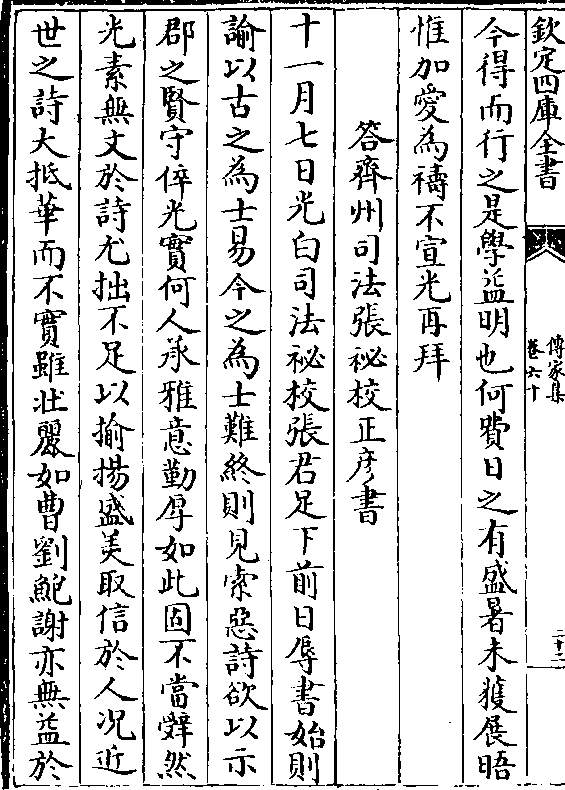 欽定四庫全書
傳家集
卷六十
二十二
今得而行之是學益明也何費日之有盛暑未獲展晤
惟加愛為禱不宣光再拜
答齊州司法張祕校正彥書
十一月七日光白司法祕校張君足下前日辱書始則
諭以古之為士易今之為士難終則見索惡詩欲以示
郡之賢守倅光實何人承雅意勤厚如此固不當辭然
光素無文於詩尤拙不足以揄揚盛美取信於人况近
世之詩大抵華而不實雖壯麗如曹劉鮑謝亦無益於